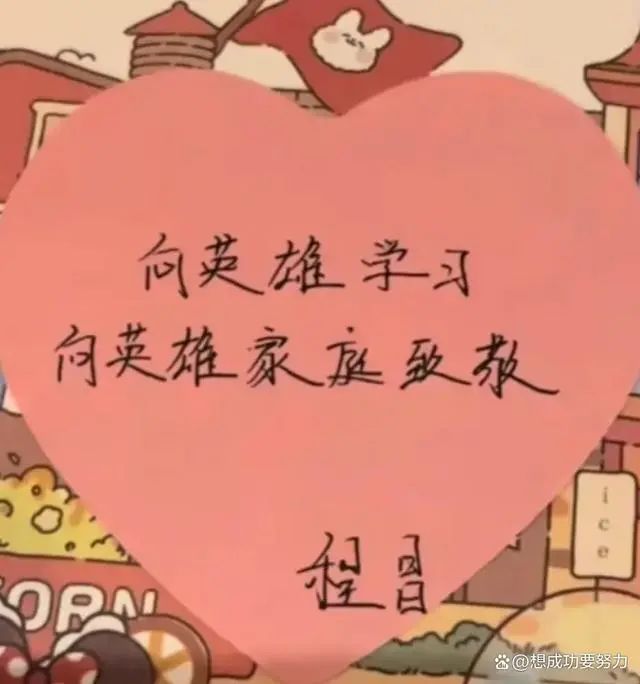 向英雄学习
向英雄家庭致敬
程昌
ice
ORN
@想成功要努力